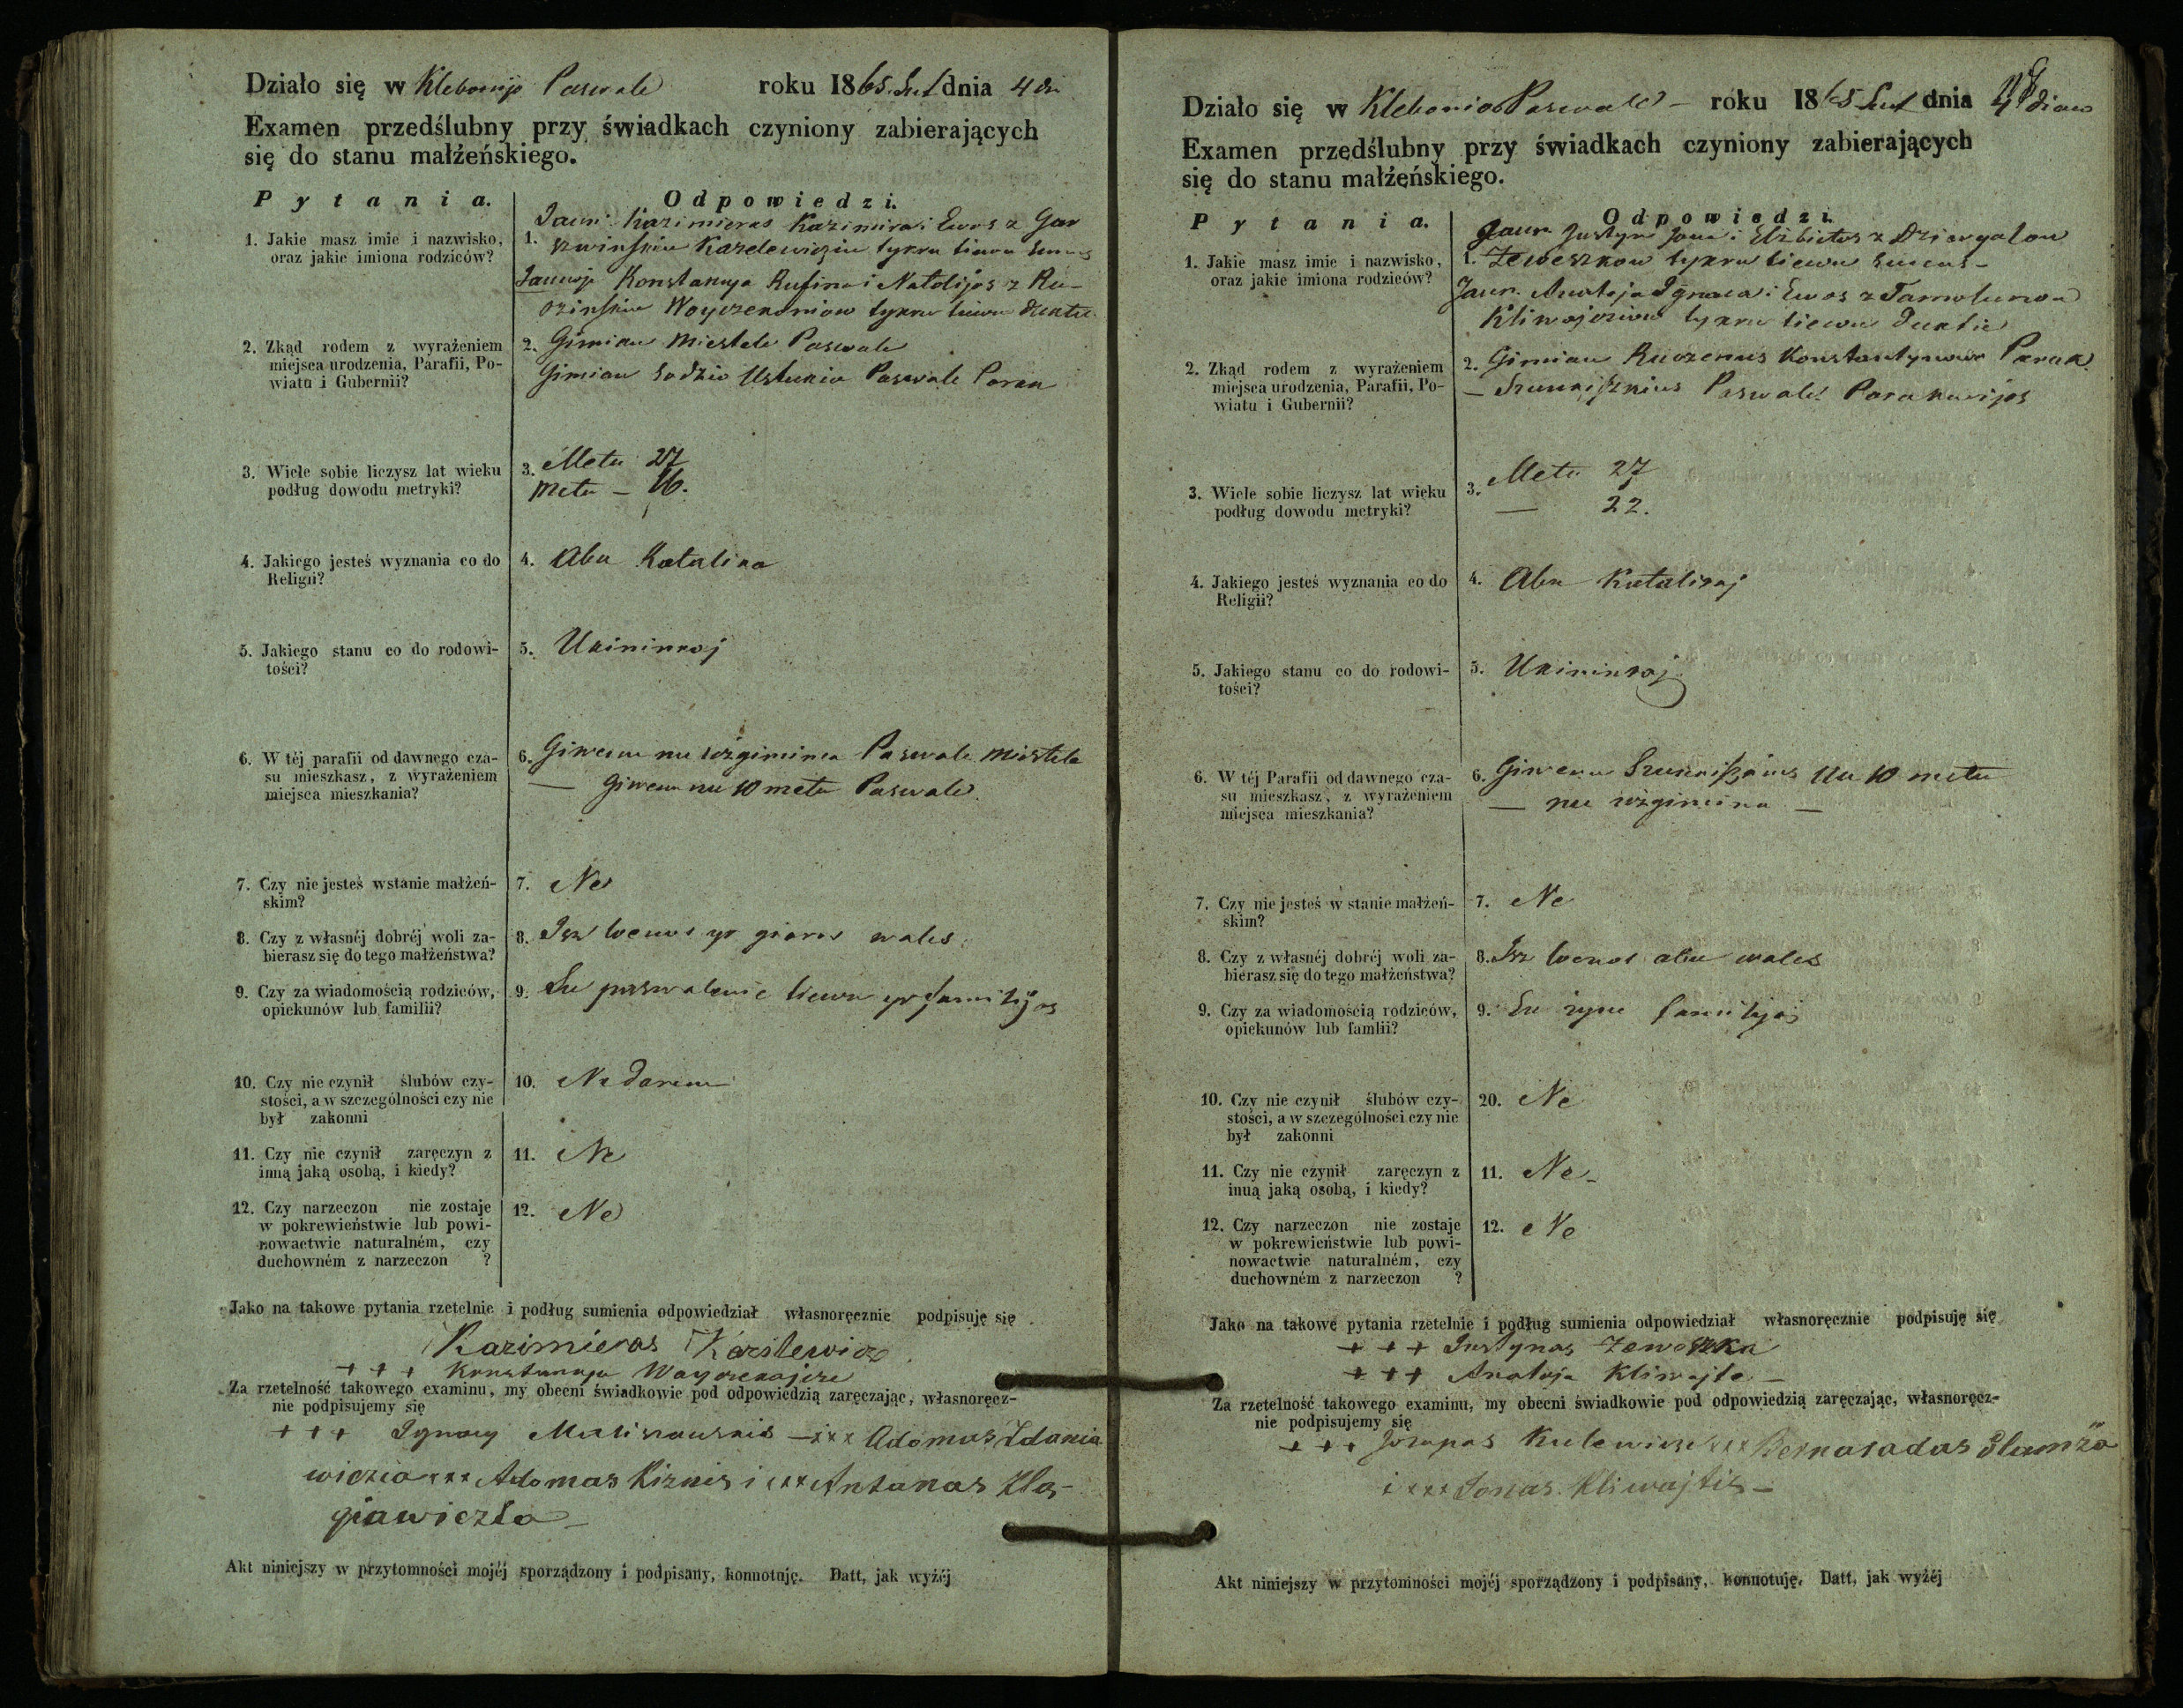 Działo się w Klebonijo Paswale roku 1865 Lut dnia 4 dn
Examen przedślubny przy świadkach czyniony zabierających
się do stanu małżeńskiego.
Pytania.
Odpowiedzi.
1. Jakie masz imie i nazwisko,
oraz jakie imiona rodziców?
1. Jaun. Kazimieras Kazimira i Ewos z Gar
szwinskiu Kazelewicziu tykru tiewu sunus
Jaunoji Konstancya Rufina i Natolijos z Ru-
Woyczekoniow tykru tiewu dukte
2. Zkąd rodem z wyrażeniem
miejsca urodzenia, Parafii, Po-
wiatu i Gubernii?
2. Gimiau Miestele Paswale
Gimiau Sodzio Ustukiu Paswale Parak
3. Wiele sobie liczysz lat wieku
podług dowodu metryki?
3. Metu 27
Metu – 16.
4. Jakiego jesteś wyznania co do
Religii?
4. Abu Katalika
5. Jakiego stanu co do rodowi-
tości?
5. Ukininkaj
6. W téj parafii od dawnego cza-
su mieszkasz, z wyrażeniem
miejsca mieszkania?
6. Giwenu nu użgimima Paswale Miestela
— Giwenu nu 10 metu Paswale
7. Czy nie jesteś wstanie małżeń-
skim?
7. Ne
8. Czy z własnéj dobréj woli za-
bierasz się do tego małżeństwa?
8. Isz locnos yr gieros wales
9. Czy za wiadomością rodziców,
opiekunów lub familii?
9. Su paswalenie tiewu yr familijos
10. Czy nie czynił ślubów czy-
stości, a w szczególności czy nie
był zakonni
10. Ne dariau
11. Czy nie czynił zaręczyn z
inną jaką osobą, i kiedy?
11. Ne
12. Czy narzeczon nie zostaje
w pokrewieństwie lub powi-
nowactwie naturalném, czy
duchowném z narzeczon ?
12. Ne
Jako na takowe pytania rzetelnie i podług sumienia odpowiedział własnoręcznie podpisuję się
Kazimieras Kazilewicz
+ + + Konstancya Woyczekajcze
Za rzetelność takowego examinu, my obecni świadkowie pod odpowiedzią zaręczając, własnoręcz-
nie podpisujemy się
+ + + Ignacy Maliszauskis – xxx Adomas Zdania
wiczia xxx Adomas Kiznis i xxx Antanas Kla-
giawiczło
Akt niniejszy w przytomności mojéj sporządzony i podpisany, konnotuję. Datt, jak wyżéj
Działo się w Klebonio Paswale – roku 1865 Lut dnia 4 dienu
Examen przedślubny przy świadkach czyniony zabierających
się do stanu małżeńskiego.
Pytania.
Odpowiedzi.
1. Jakie masz imie i nazwisko,
oraz jakie imiona rodziców?
1. Jaun. Justyn Jona i Elżbietos z Dziergalow
Zeweszkow tykru tiewu sunus –
Jaun. Anatoja Ignaca i Ewos z Tamolunow
Kliwajcziu tykru tiewu duktie
2. Zkąd rodem z wyrażeniem
miejsca urodzenia, Parafii, Po-
wiatu i Gubernii?
2. Gimiau Konstantynowo Parak.
— Paswale Parakwijos
3. Wiele sobie liczysz lat wieku
podług dowodu metryki?
3. Metu 27
— 22.
4. Jakiego jesteś wyznania co do
Religii?
4. Abu Katalikaj
5. Jakiego stanu co do rodowi-
tości?
5. Ukininkaj
6. W téj Parafii od dawnego cza-
su mieszkasz, z wyrażeniem
miejsca mieszkania?
6. Giwenu nu 10 metu
— nu użgimima —
7. Czy nie jesteś w stanie małżeń-
skim?
7. Ne
8. Czy z własnéj dobréj woli za-
bierasz się do tego małżeństwa?
8. Isz locnos abu wales
9. Czy za wiadomością rodziców,
opiekunów lub famlii?
9. Su zyne familyos
10. Czy nie czynił ślubów czy-
stości, a w szczególności czy nie
był zakonni
20. Ne
11. Czy nie czynił zaręczyn z
inuą jaką osobą, i kiedy?
11. Ne –
12. Czy narzeczon nie zostaje
w pokrewieństwie lub powi-
nowactwie naturalném, czy
duchowném z narzeczon ?
12. Ne
Jako na takowe pytania rzetelnie i podług sumienia odpowiedział własnoręcznie podpisuję się
+ + + Justynas Zeweszka
+ + + Anatoja Kliwajte –
Za rzetelność takowego examinu, my obecni świadkowie pod odpowiedzią zaręczając, własnoręcz-
nie podpisujemy się
+ + + Jozapas Kulewicze xxx Bernasadas Slamża
i xxx Jonas Kliwajtis –
Akt niniejszy w przytomności mojéj sporządzony i podpisany, konnotuję. Datt, jak wyżéj